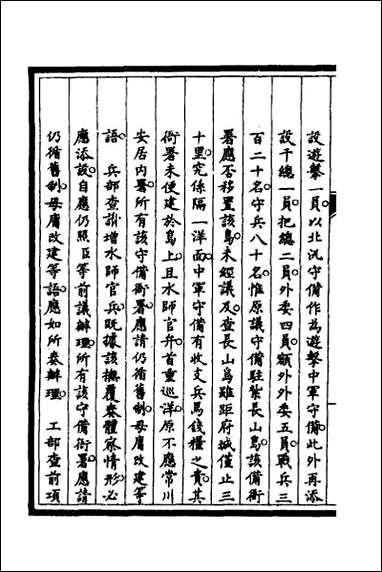 設遊擊一員。以北汛守備作為遊擊中軍守備。此外再添
設千總一員。把總二員。外委四員。額外外委五員。戰兵三
百二十名。守兵八十名。惟原議守備駐紮長山島。該備衙
署應否移置該島。未經議及。查長山島雖距府城僅止三
十里。究係隔一洋面。中軍守備有收支兵馬錢糧之責。其
衙署未便建於島上。且水師官弁。首重巡洋。原不應常川
安居內署。所有該守備衙署。應請仍循舊制。毋庸改建等
語。 兵部查新增水師官兵。既據該撫覆奏體察情形。必
應添設。自應仍照臣等前議辦理。所有該守備衙署。應請
仍循舊制。毋庸改建等語。應如所奏辦理。 工部查前項